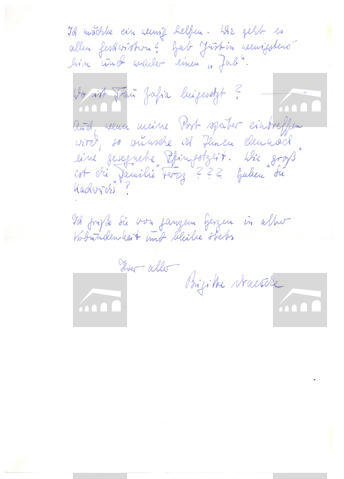 Ich möchte ein wenig helfen. Wie geht es
allen Geschwistern? Hat Justin wenigstens
hin und wieder einen „Job".
Wo ist Frau Zofia beigesetzt?
Auch, wenn meine Post später eintreffen
wird, so wünsche ich Ihnen dennoch
eine gesegnete Pfingstzeit. Wie „groß"
ist die Familie ??? Haben Sie
Nachricht?
Ich grüße Sie von ganzem Herzen in alter
Verbundenheit und bleibe stets
Ihrer aller
Brigitte